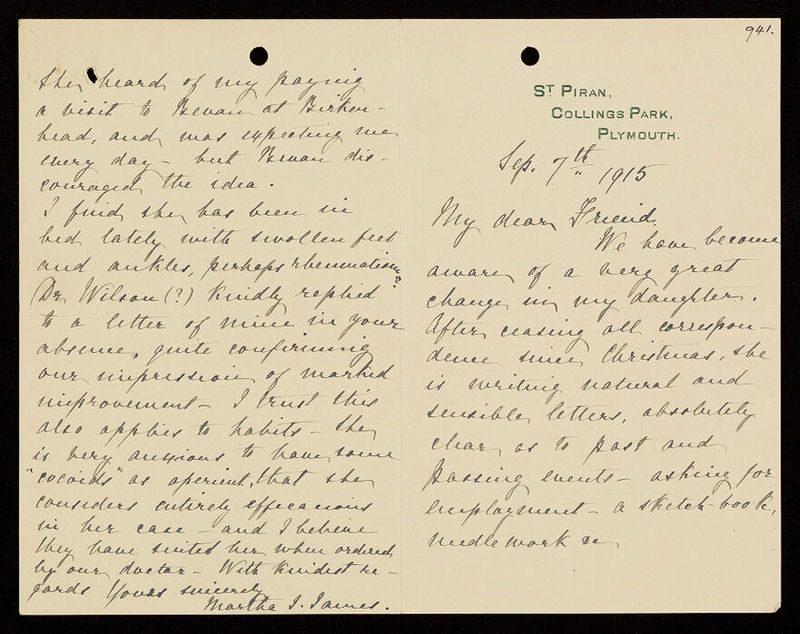 941.
ST PIRAN,
COLLINGS PARK,
PLYMOUTH.
Sep. 7th 1915
My dear Friend,
We have become
aware of a very great
change in my daughter.
After ceasing all correspon-
dence since Christmas, she
is writing natural and
sensible letters, absolutely
clear as to past and
passing events - asking for
employment - a sketch-book,
needlework &c
She heard of my paying
a visit to Bevan at Birken-
head, and was expecting me
every day - but Bevan dis-
couraged the idea.
I find she has been in
bed lately with swollen feet
and ankles, perhaps rheumatism?
Dr Wilson (?) kindly replied
to a letter of mine in your
absence, quite confirming
our impression of marked
improvement - I trust this
also applies to habits - She
is very anxious to have some
"cocoids" as aperient, that she
considers entirely efficacious
in her case - and I believe
they have suited her when ordered
by our doctor - With kindest re-
gards Yours sincerely
Martha J. James.